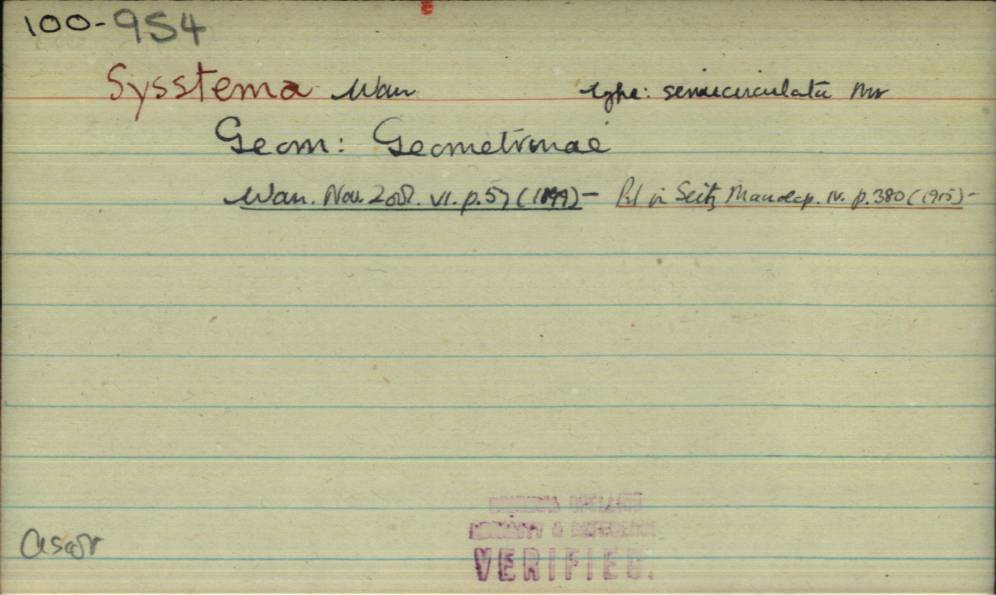 100-954
Sysstema Warr type: semicirculata Mr
Geom: Geometrinae
Warr. Nov. Zool. VI. p.57 (1899) - in Seitz Macrolep. IV. p.380 (1915) -
VERIFIED.